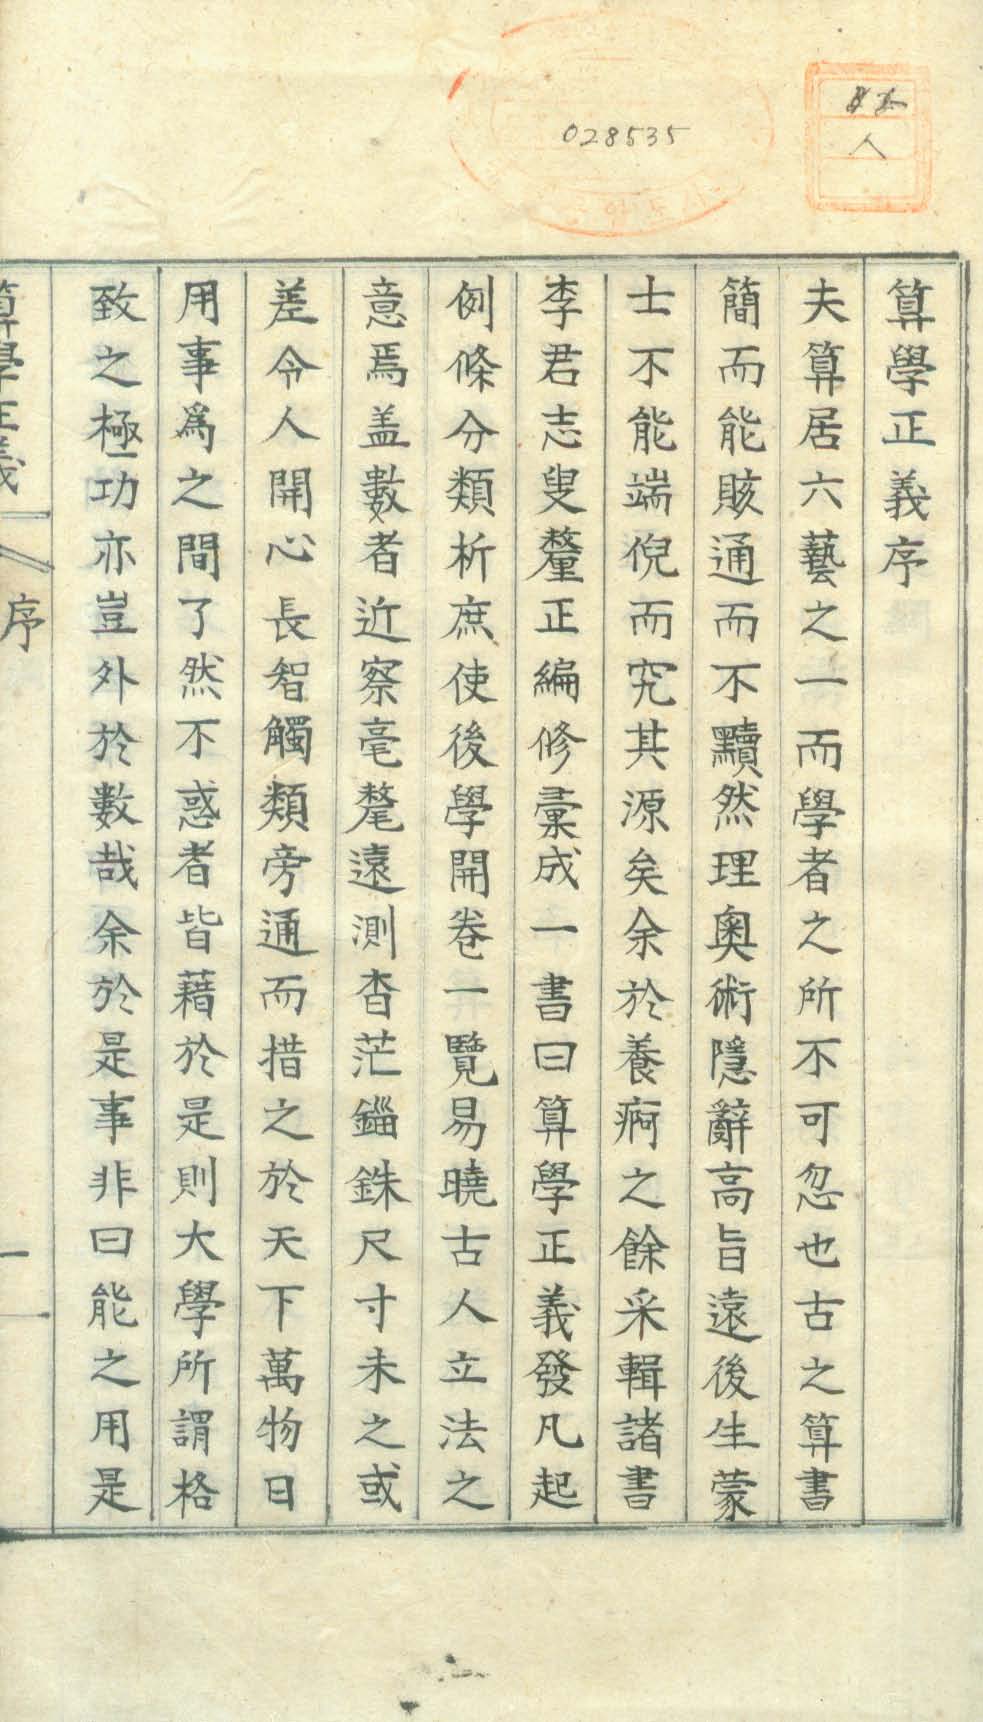 028535
人
算學正義序
夫算居六藝之一而學者之所不可忽也古之算書
簡而能賅通而不黷然理奧術隱辭高旨遠後生蒙
士不能端倪而究其源矣余於養痾之餘采輯諸書
李君志叟釐正編修彙成一書曰算學正義發凡起
例條分類析庶使後學開卷一覽易曉古人立法之
意焉盖數者近察毫氂遠測杳茫錙銖尺寸未之或
差令人開心長智觸類旁通而措之於天下萬物日
用事爲之間了然不惑者皆藉於是則大學所謂格
致之極功亦豈外於數哉余於是事非曰能之用是
算學正義 序 一